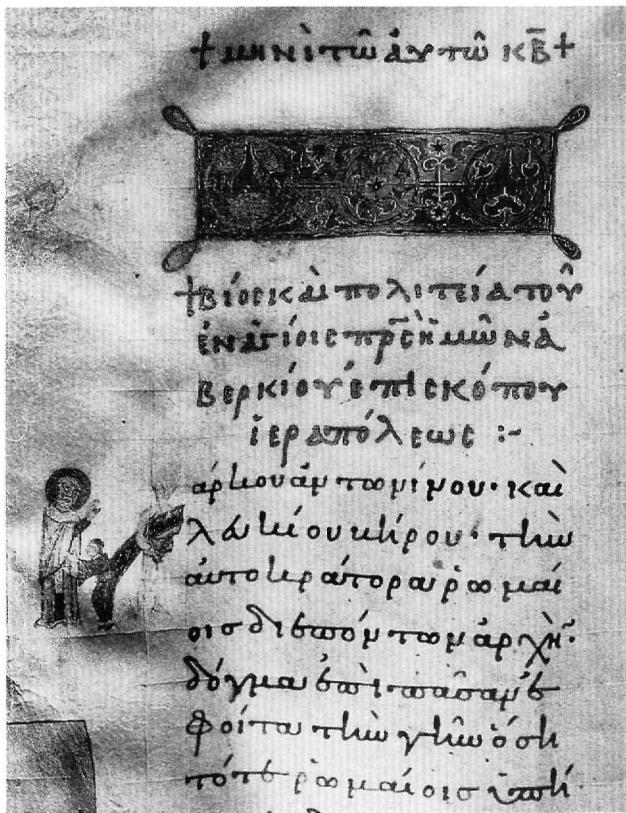 + μηνὶ τῶ αὐτῶ κβ̅ +
+ βίος καὶ πολιτεία τοῦ
ἐν ἁγίοις πρ̅ς ἡμῶν ἀ
βερκίου ἐπισκόπου
ἱεραπόλεως :-
άρκου ἀντωνίνου· καὶ
λουκίου κήρου· τὴν
αὐτοκράτορα ῥωμαί
οις διεπόντων ἀρχὴν·
δόγμα ἐπὶ πᾶσαν ἐ
φοίτα τὴν γῆν ὅση
τότε ῥωμαίοις ὑπή